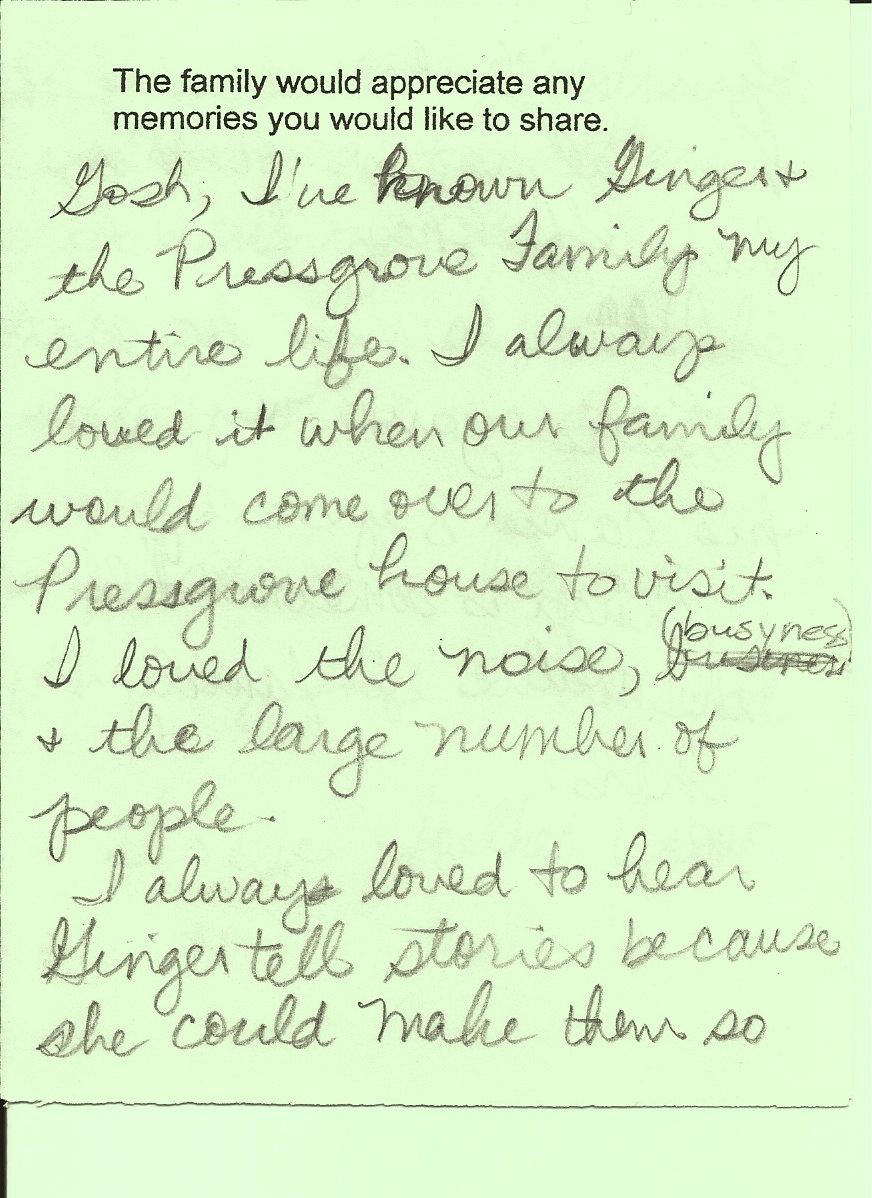 The family would appreciate any
memories you would like to share.
Gosh, I've known Ginger &
the Pressgrove Family my
entire life. I always
loved it when our family
would come over to the
Pressgrove house to visit.
(busyness)
I loved the noise,
& the large number of
people.
I always loved to hear
Ginger tell stories because
she could make them so